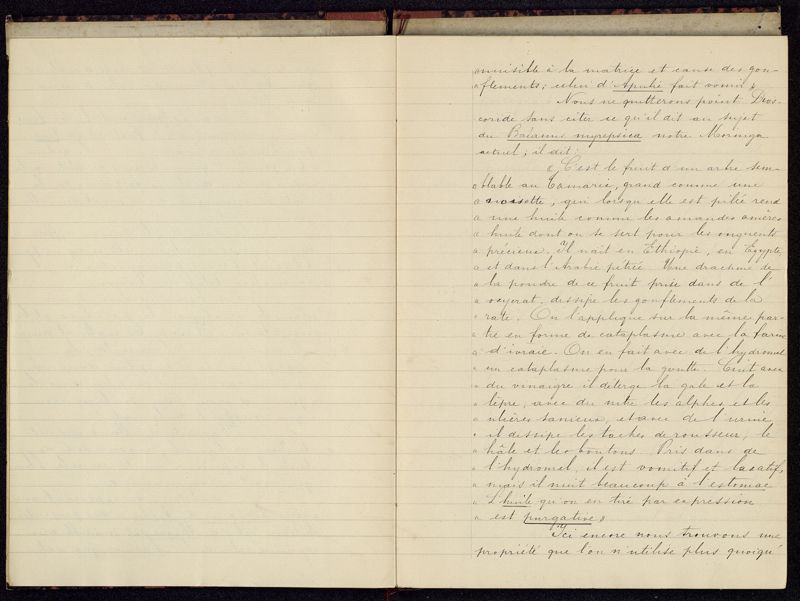 « nuisible à la matrice et cause des gon-
« flements; celui d'Apulie fait vomir »
Nous ne quitterons point Dios-
coride sans citer ce qu'il dit au sujet
du Balanus myrepsica notre Moringa
actuel; il dit:
« C'est le fruit d'un arbre sem-
« blable au Tamaris, grand comme une
« noisette, qui lorsqu'elle est pilée rend
« une huile comme les amandes amères
« huile dont on se sert pour les onguents
« précieux. Il nait en Ethiopie, en Egypte,
« et dans l'Arabie pétrée. Une drachme de
« la poudre de ce fruit prise dans de l'
« oxycrat, dissipe les gonflements de la
« rate. On l'applique sur la même par-
« tie en forme de cataplasme avec la farine
« d'ivraie. On en fait avec de l'hydromel
« un cataplasme pour la goutte. Cuit avec
« du vinaigre il déterge la gale et la
« lèpre, avec du nitre les alphes et les
« ulières sanieux, et avec de l'urine
« il dissipe les taches de rousseur, le
« hâle et les boutons. Pris dans de
« l'hydromel, il est vomitif et laxatif,
« mais il nuit beaucoup à l'estomac
« L'huile qu'on en tire par expression
« est purgative »
Ici encore nous trouvons une
propriété que l'on n'utilise plus quoiqu'